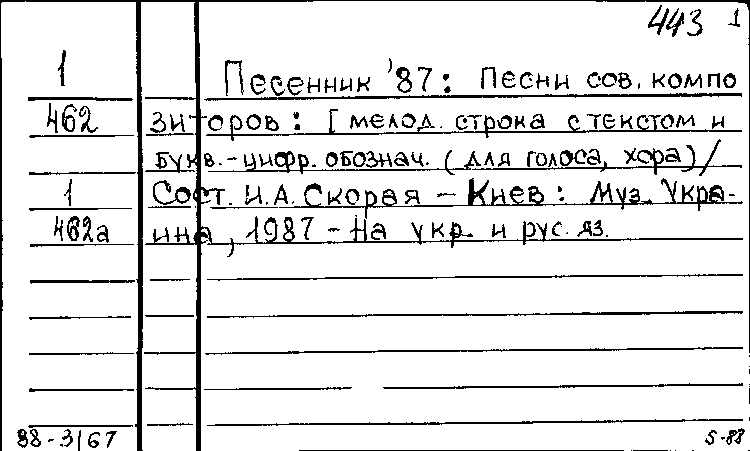 443 1
1 Песенник '87: Песни сов. компо
462 зиторов: [мелод. строка с текстом и
букв.-цифр. обознач. (для голоса, хора)/
1 Сост. И.А. Скорая – Киев: Муз. Укра-
462а ина, 1987 – На укр. и рус. яз.
88-3167 5-88